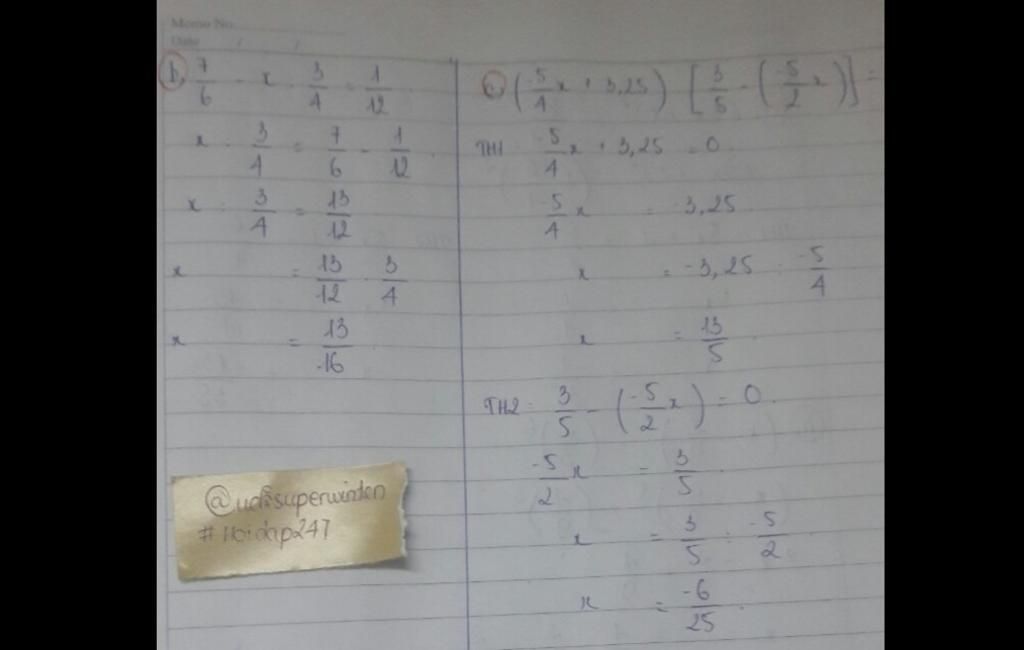 Memo No.
Date / /
b, 7/6 - x : 3/4 = 1/12
x : 3/4 = 7/6 - 1/12
x : 3/4 = 13/12
x = 13/12 . 3/4
x = 13/16
c, (-5/4 x + 3,25) [3/5 - (-5/2 x)] =
TH1: -5/4 x + 3,25 = 0
-5/4 x = -3,25
x = -3,25 : -5/4
x = 13/5
TH2: 3/5 - (-5/2 x) = 0.
-5/2 x = 3/5
x = 3/5 : -5/2
x = -6/25
#Hoidap247